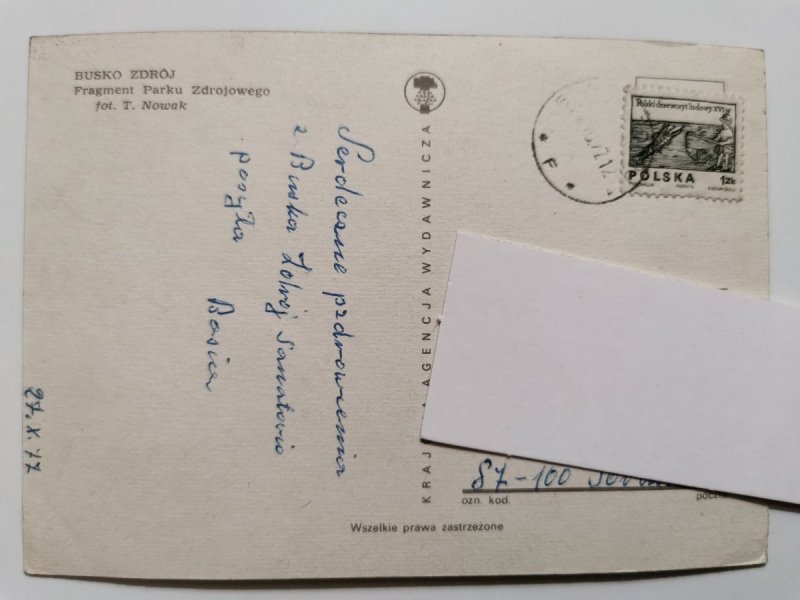 BUSKO ZDRÓJ
Fragment Parku Zdrojowego
fot. T. Nowak
Serdeczne pzdrowienia
z Buska Zdrój Sanatorio
posyła
Basia
27.X.77
KRAJ AGENCJA WYDAWNICZA
Polski drzeworyt ludowy XVI
POLSKA 1ZŁ
F
87-100
ozn. kod.
poczta
Wszelkie prawa zastrzeżone